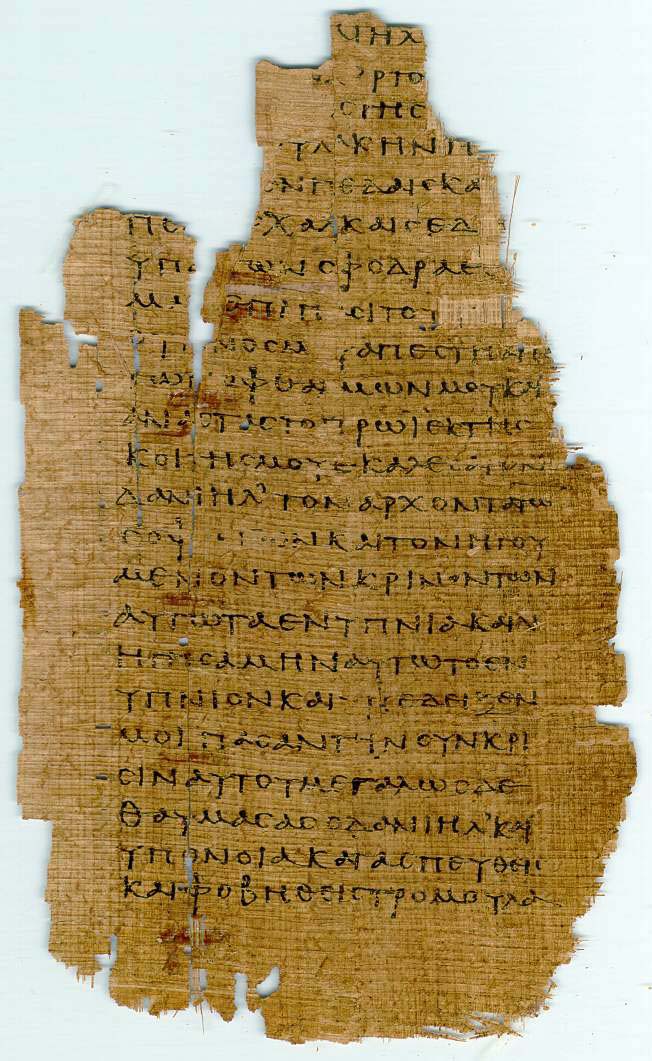 ΡΤΟ
ΤΗΣ
ΛΑΚΗΝΠ
ΝΠΕΔΑΙΣΚΑ
ΠΕ ΧΑΛΚΑΙΣΕΔ
ΥΠΑ ΩΝΣΦΟΔΡΑΕ
ΕΠΙΠ ΣΙΤΟΥ
ΝΟΣΜ ΑΠΕΣΤΗΑΠ
ΟΦΘΑΛΜΩΝΜΟΥΚΑΙ
ΑΝΑΣΤΑΣΤΟΠΡΩΙΕΚΤΗΣ
ΚΟΙΤΗΣΜΟΥΕΚΑΛΕΣΑΤΟΝ
ΔΑΝΙΗΛ᾽ΤΟΝΑΡΧΟΝΤΑΤΩ
ΣΟΦ ΤΩΝΚΑΙΤΟΝΗΓΟΥ
ΜΕΝΟΝΤΩΝΚΡΙΝΟΝΤΩΝ
ΑΥΤΩΤΑΕΝΥΠΝΙΑΚΑΙΔΙ
ΗΓΗΣΑΜΗΝΑΥΤΩΤΟΕΝ
ΥΠΝΙΟΝΚΑΙΥΠΕΔΕΙΞΕΝ
ΜΟΙΠΑΣΑΝΤΗΝΣΥΝΚΡΙ
ΣΙΝΑΥΤΟΥΜΕΓΑΛΩΣΔΕ
ΘΑΥΜΑΣΑΣΟΔΑΝΙΗΛ᾽ΚΑΙ
ΥΠΟΝΟΙΑΚΑΤΑΣΠΕΥΘΕΙΣ
ΚΑΙΦΟΒΗΘΕΙΣΤΡΟΜΟΥΛΑ